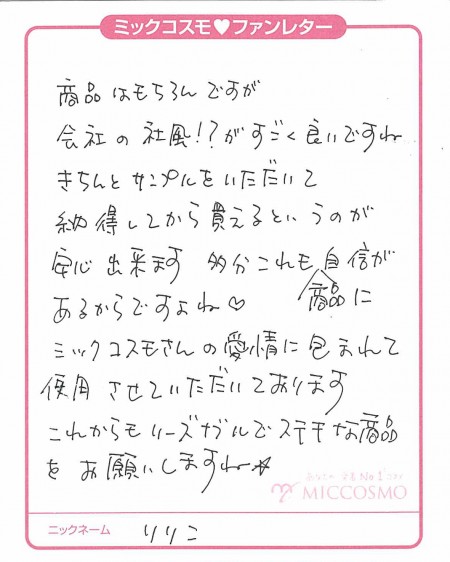 ミックコスモ♥ファンレター
商品はもちろんですが
会社の社風!?がすごく良いですね
きちんとサンプルをいただいて
納得してから買えるというのが
安心出来ます 多分これも自信が
商品に
あるからですよね♡
ミックコスモさんの愛情に包まれて
使用させていただいております
これからもリーズナブルでステキな商品
をお願いしますね☆
MICCOSMO
ニックネーム りりこ